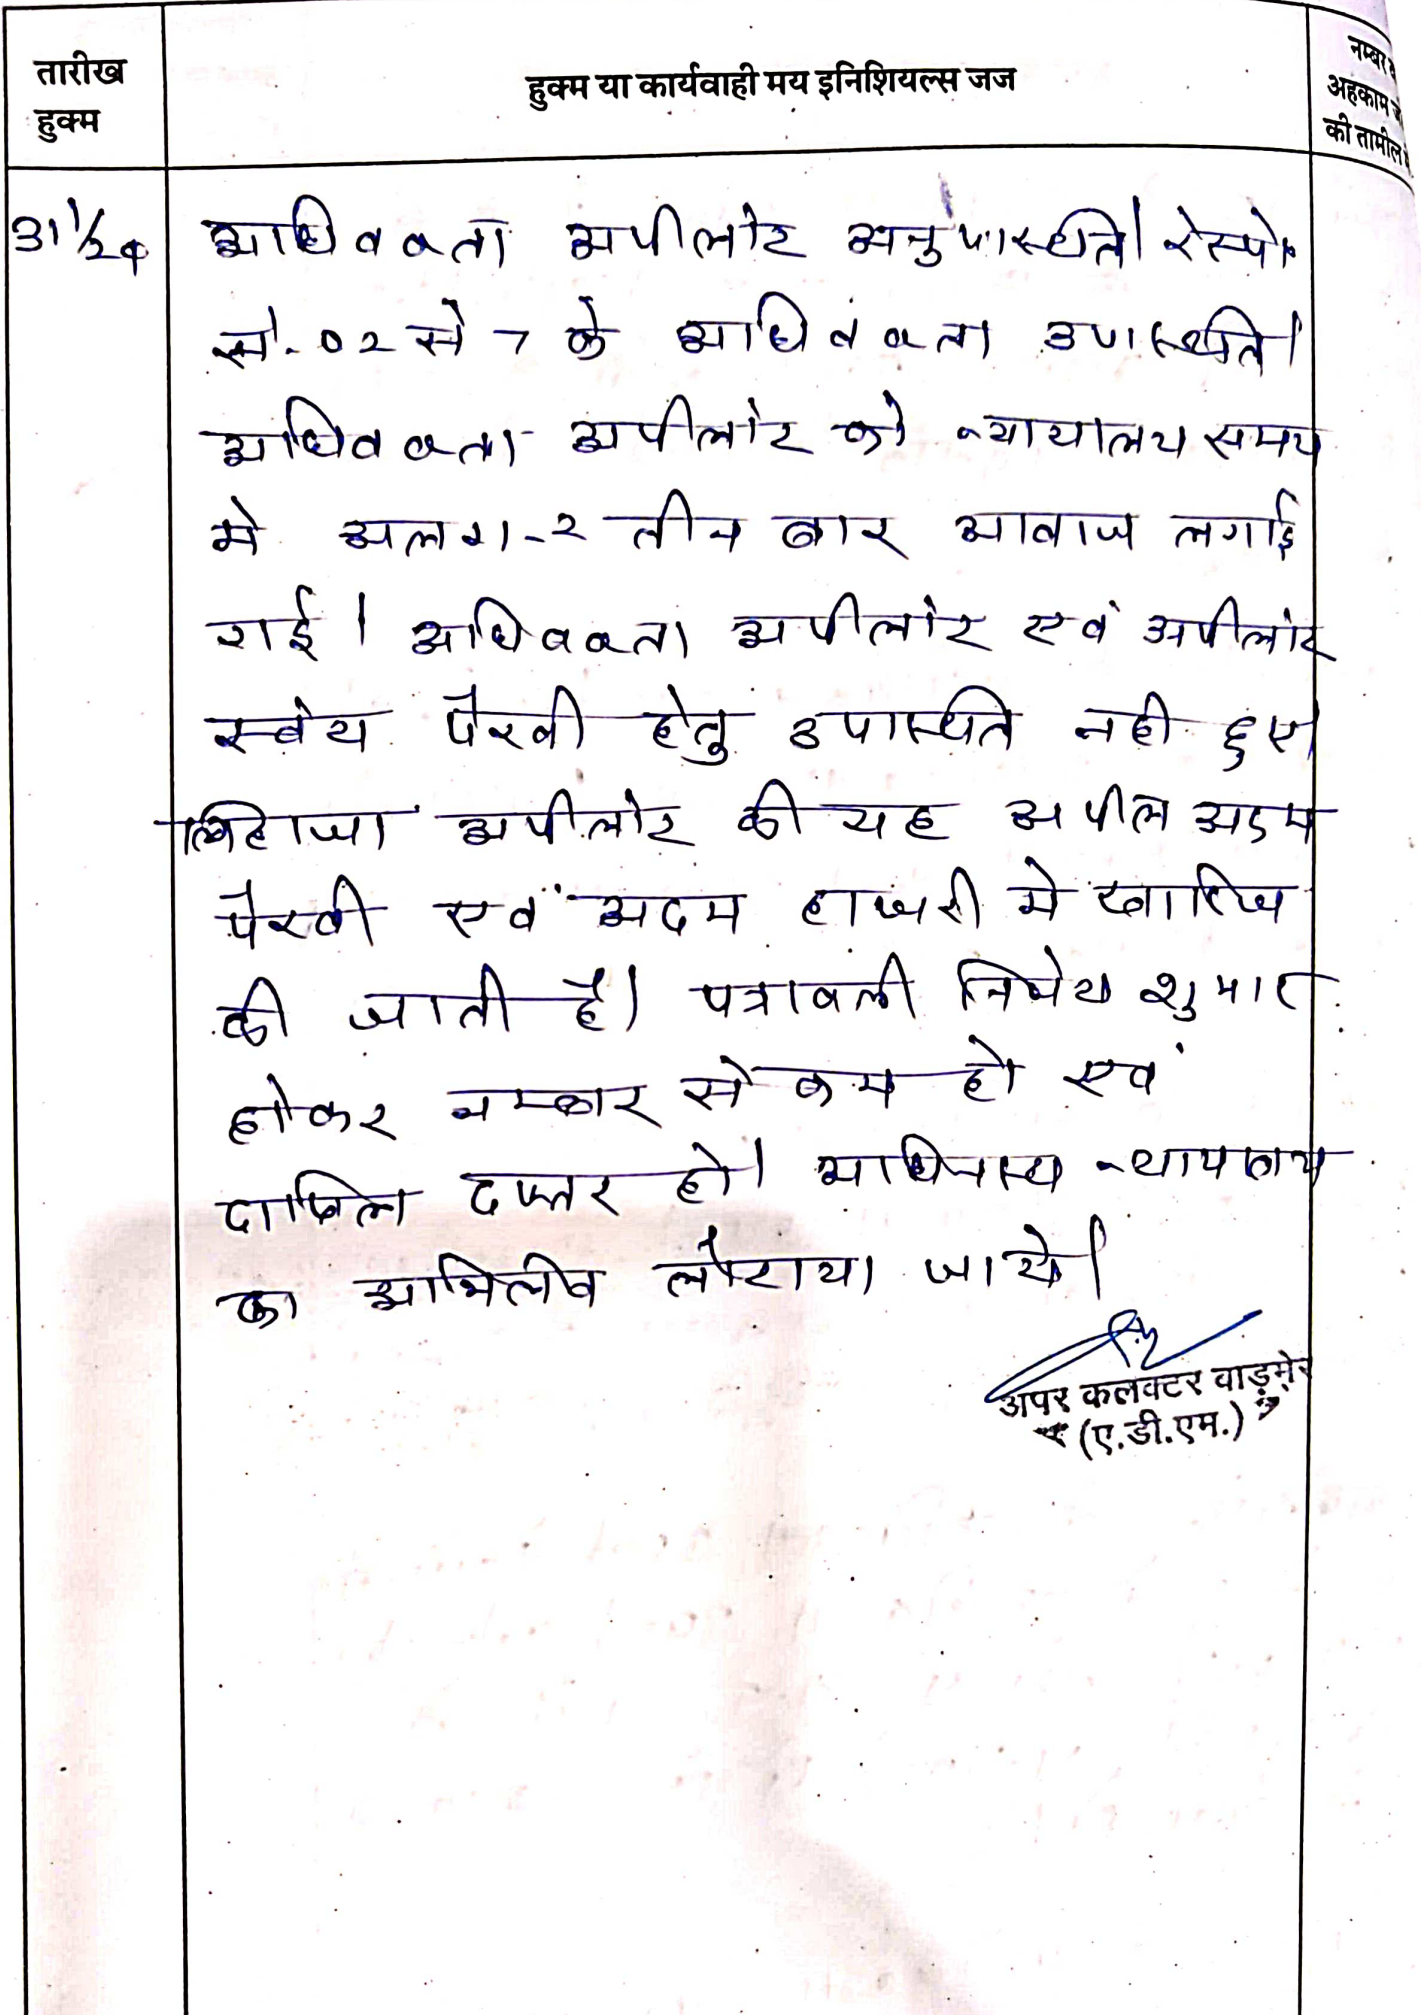 तारीख
हुक्म
हुक्म या कार्यवाही मय इनिशियल्स जज
नम्बर व
अहकाम जो
की तामील में
31/1/24
अधिवक्ता अपीलांट अनुपस्थित। रेस्पो०
सं. 02 से 7 के अधिवक्ता उपस्थित।
अधिवक्ता अपीलांट को न्यायालय समय
मे अलग-2 तीन बार आवाज लगाई
गई। अधिवक्ता अपीलांट एवं अपीलांट
स्वंय पैरवी हेतु उपस्थित नही हुए।
लिहाजा अपीलांट की यह अपील अदम
पैरवी एवं अदम हाजरी मे खारिज
की जाती है। पत्रावली निर्णय शुमार
होकर नम्बर से कम हो एवं
दाखिल दफ्तर हो। अधिनस्थ न्यायालय
का अभिलेख लौटाया जाये।
अपर कलक्टर बाड़मेर
(ए.डी.एम.)